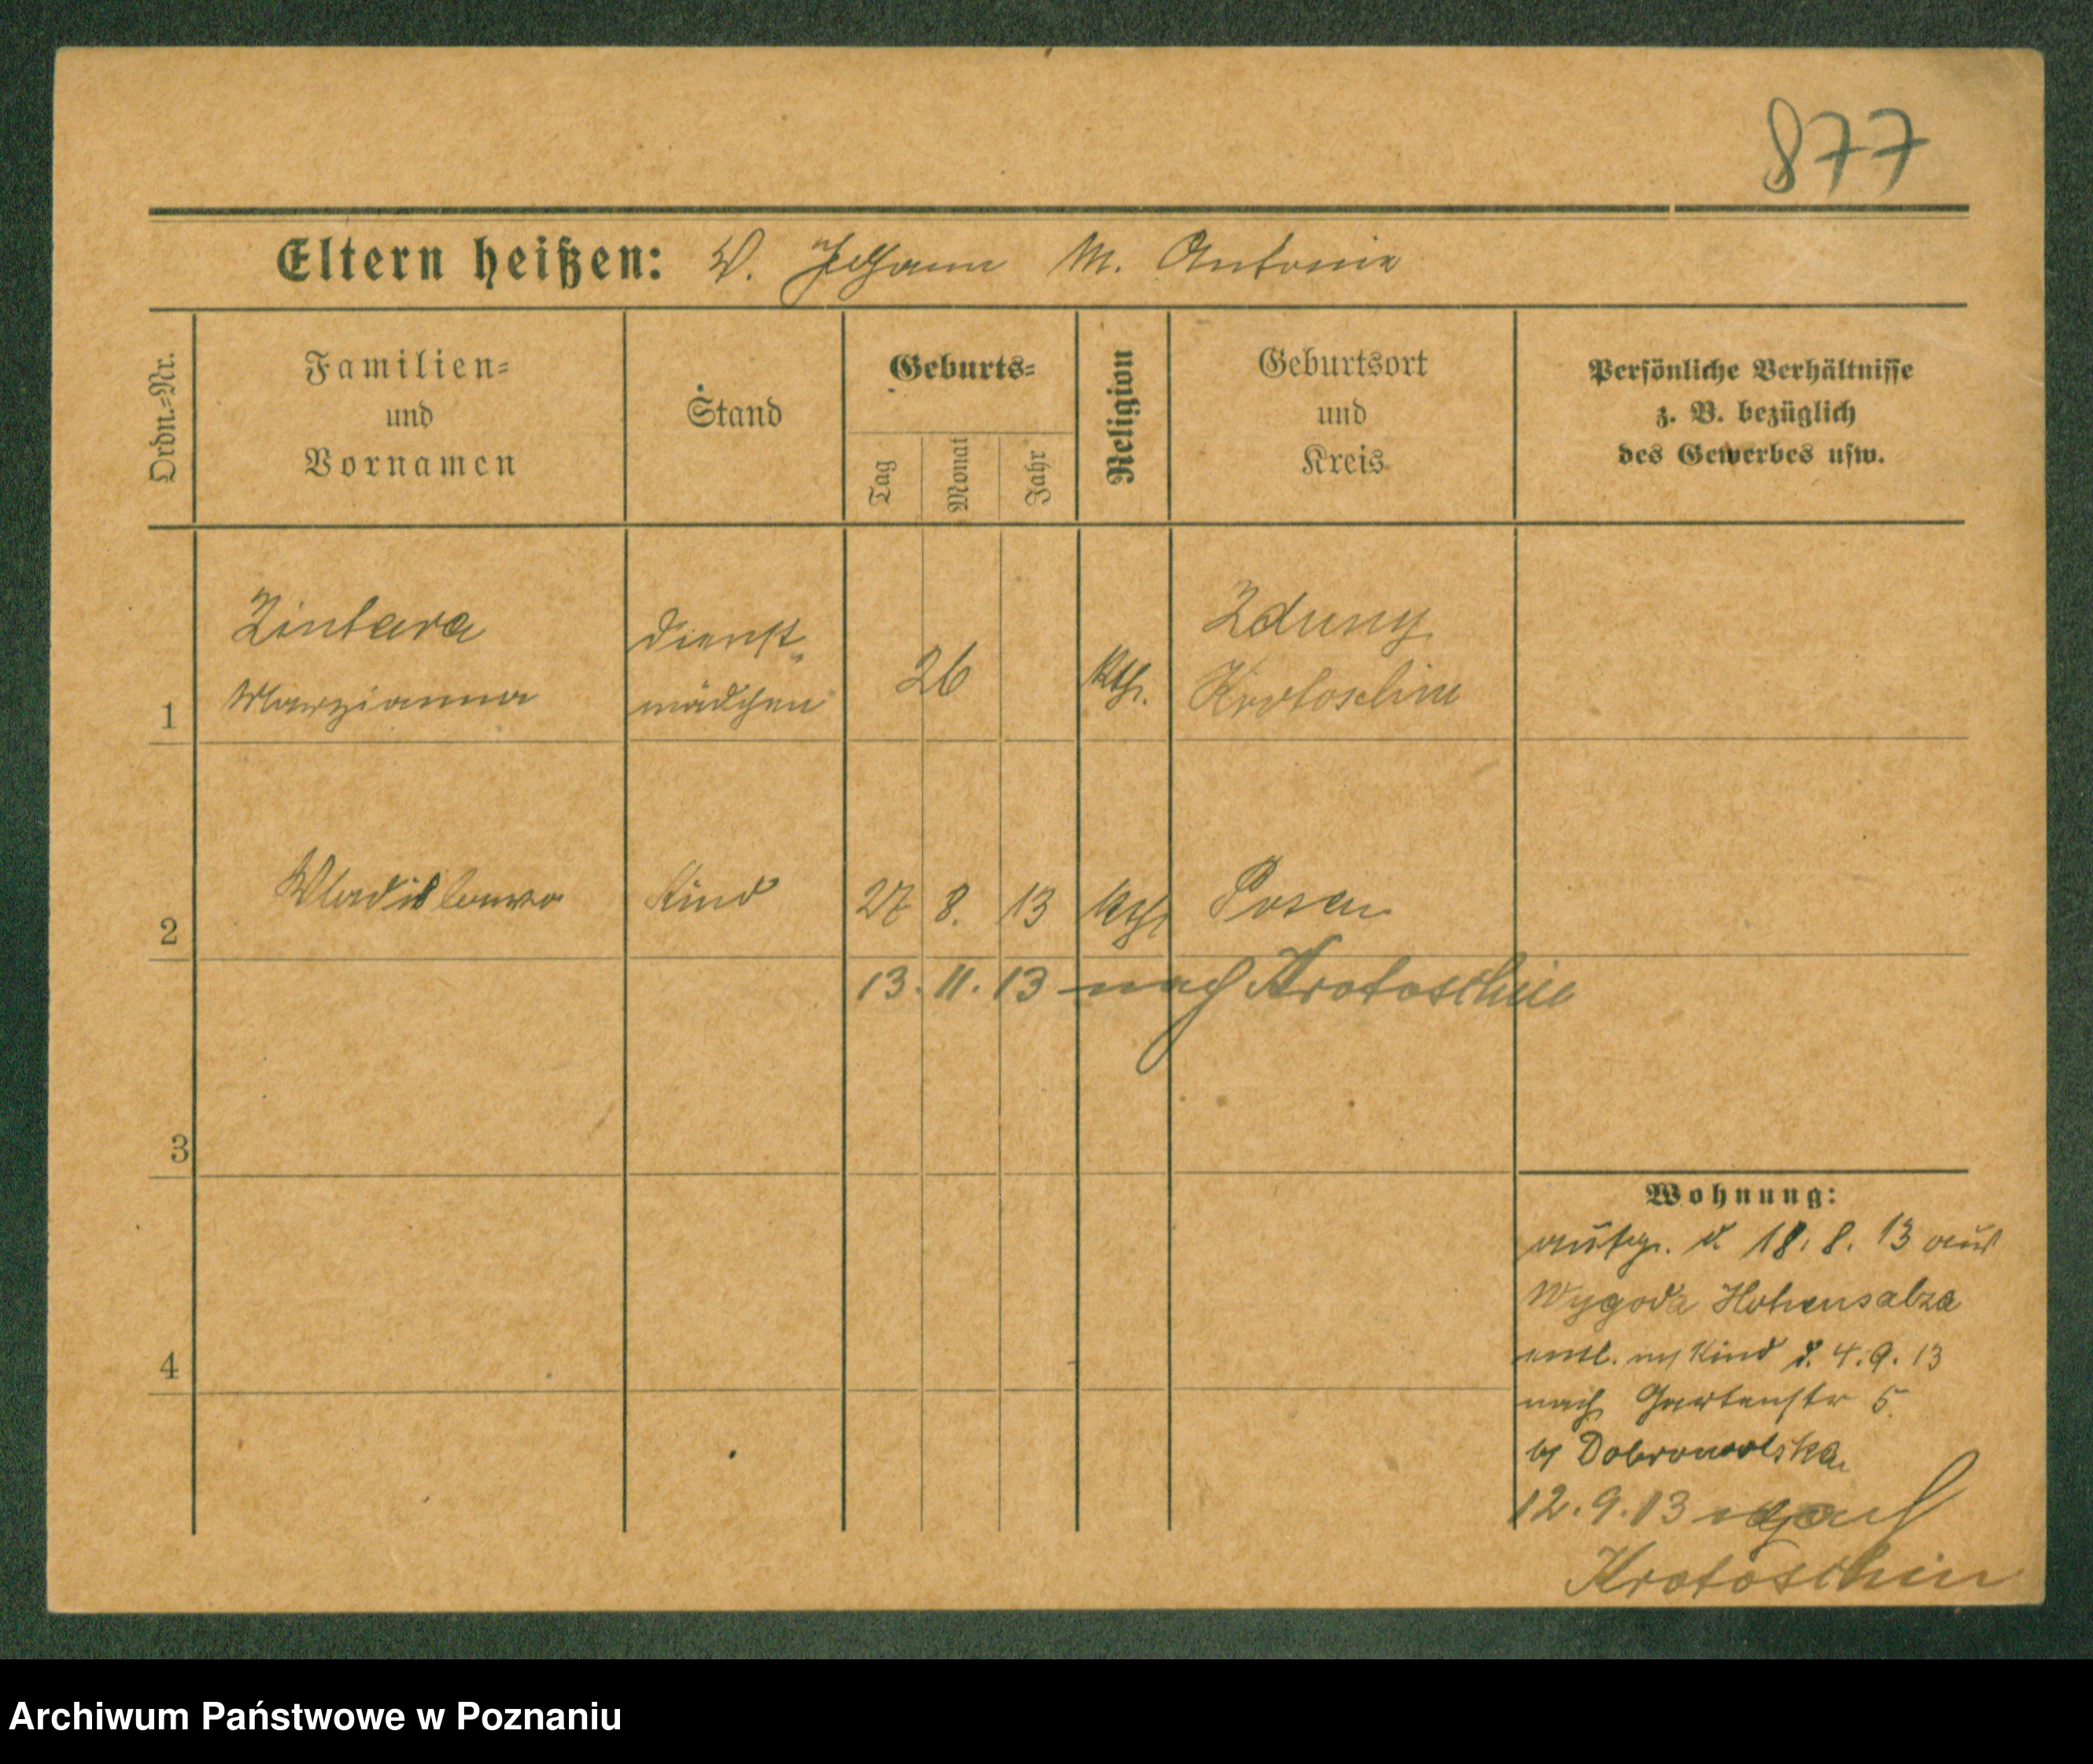 877
Eltern heißen: V. Johann M. Antonie
Ordn.=Nr.
Familien=
und
Vornamen
Stand
Geburts=
Tag
Monat
Jahr
Religion
Geburtsort
und
Kreis
Persönliche Verhältnisse
z. B. bezüglich
des Gewerbes usw.
1
Zintara
Marzianna
Dienst=
mädchen
26
kth.
Zduny
Krotoschin
2
Wladislawa
Kind
27 8. 13
kth
Posen
13. 11. 13 nach Krotoschin
3
4
Wohnung:
aufg. d. 18. 8. 13 aus
Wygoda Hohensalza
entl. m Kind d. 4. 9. 13
nach Gartenstr 5.
b/ Dobrowolska
12. 9. 13 nach
Krotoschin
Archiwum Państwowe w Poznaniu